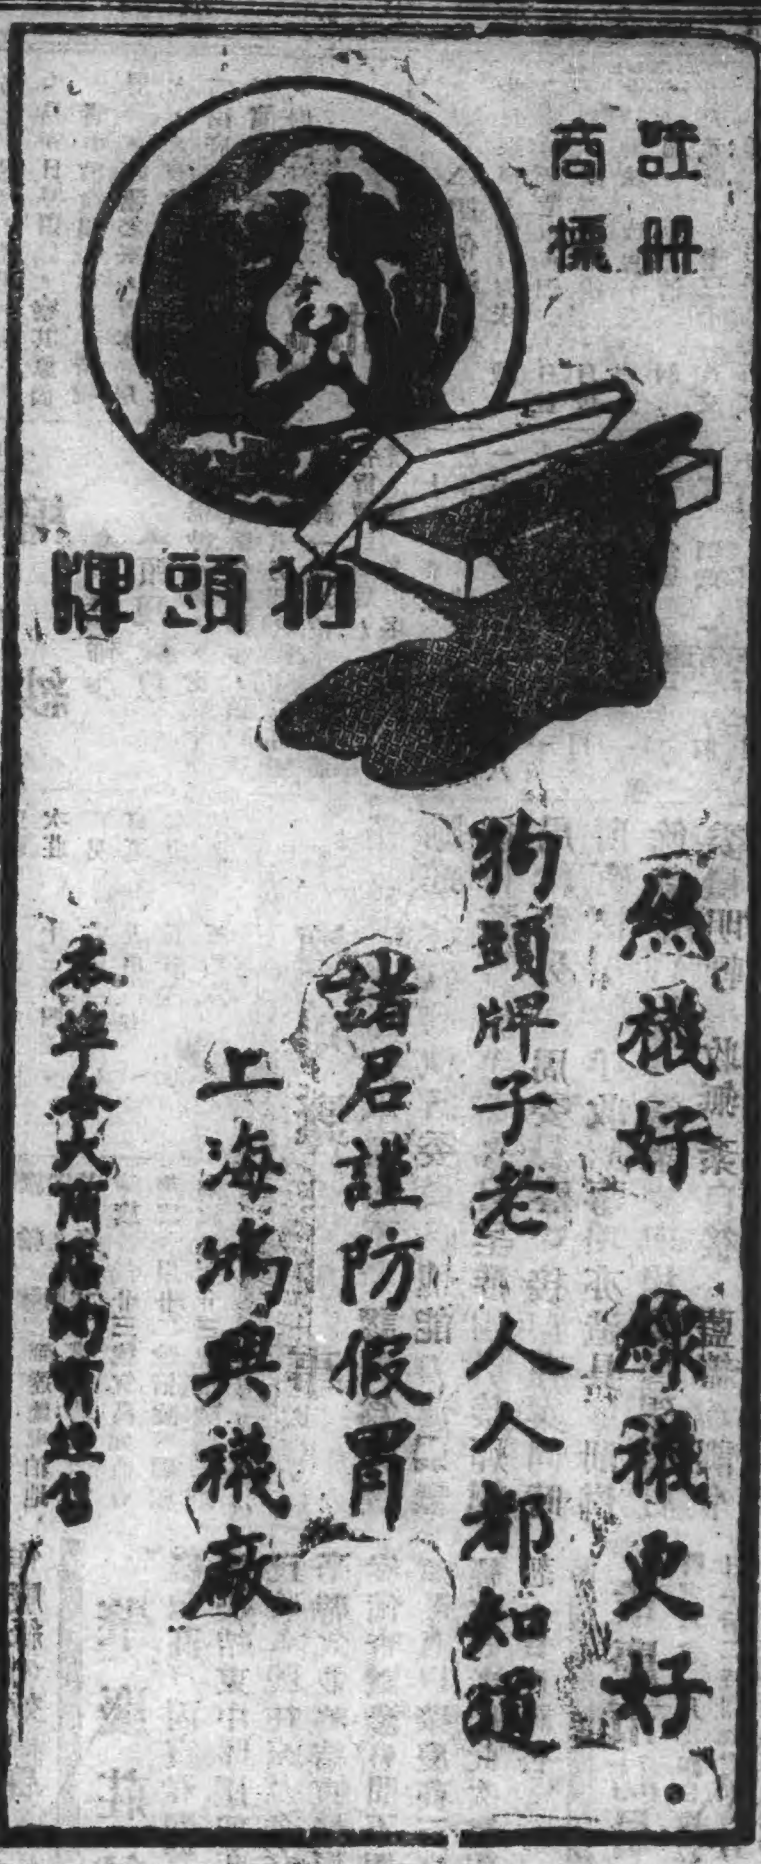 註冊
商標
狗頭牌
絲襪好 線襪更好.
狗頭牌子老 人人都知道
諸君謹防假冒
上海鴻興襪廠
本埠各大商店均有經售